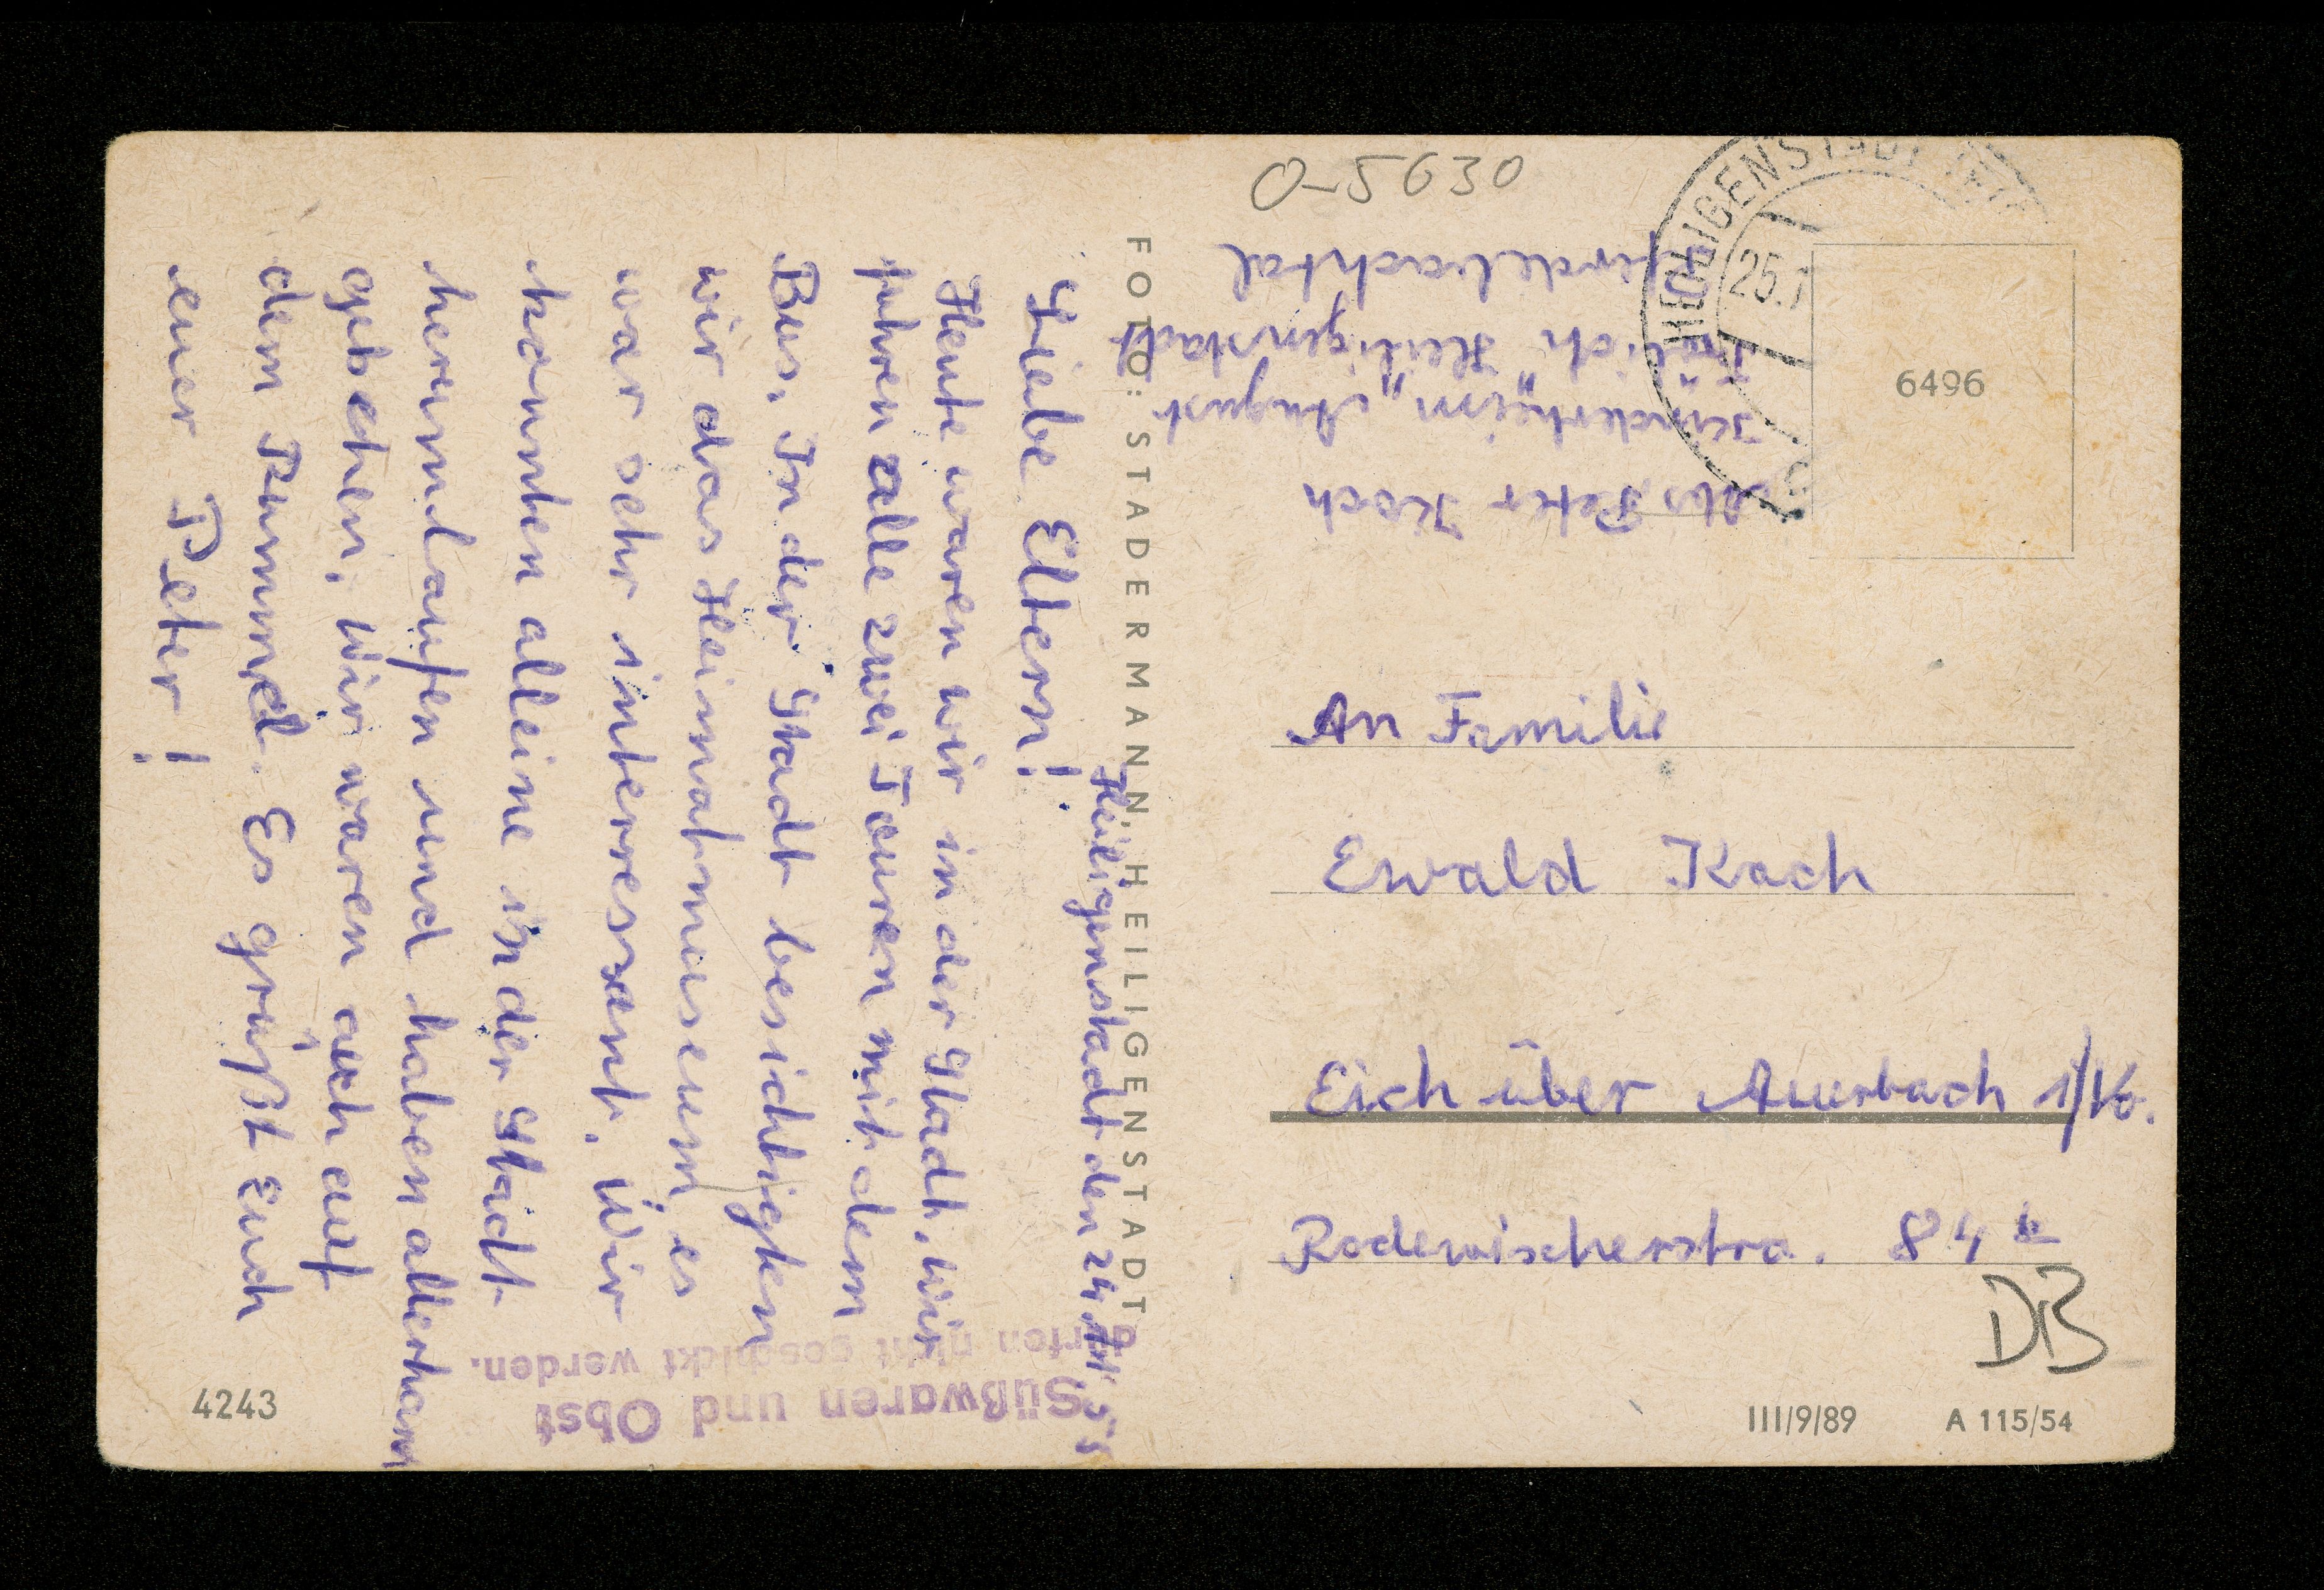 Heiligenstadt den 24.
Liebe Eltern!
Heute waren wir in der Stadt. Wir
fuhren alle zwei Touren mit dem
Bus. In der Stadt besichtigten
wir das Heimatmuseum, es
war sehr interressant. Wir
konnten alleine in der Stadt
herumlaufen und haben allerhand
gesehen. Wir waren auch auf
dem Rummel. Es grüßt Euch
euer Peter!
Süßwaren und Obst
dürfen nicht geschickt werden.
4243
FOTO: STADERMANN, HEILIGENSTADT
O-5630
HEILIGENSTADT
25.
6496
Abs. Peter Koch
Kinderheim "August
Frölich" Heiligenstadt
Pferdebachtal
An Familie
Ewald Koch
Eich über Auerbach i/V.
Rodewischerstra. 84 b
DB
III/9/89 A 115/54